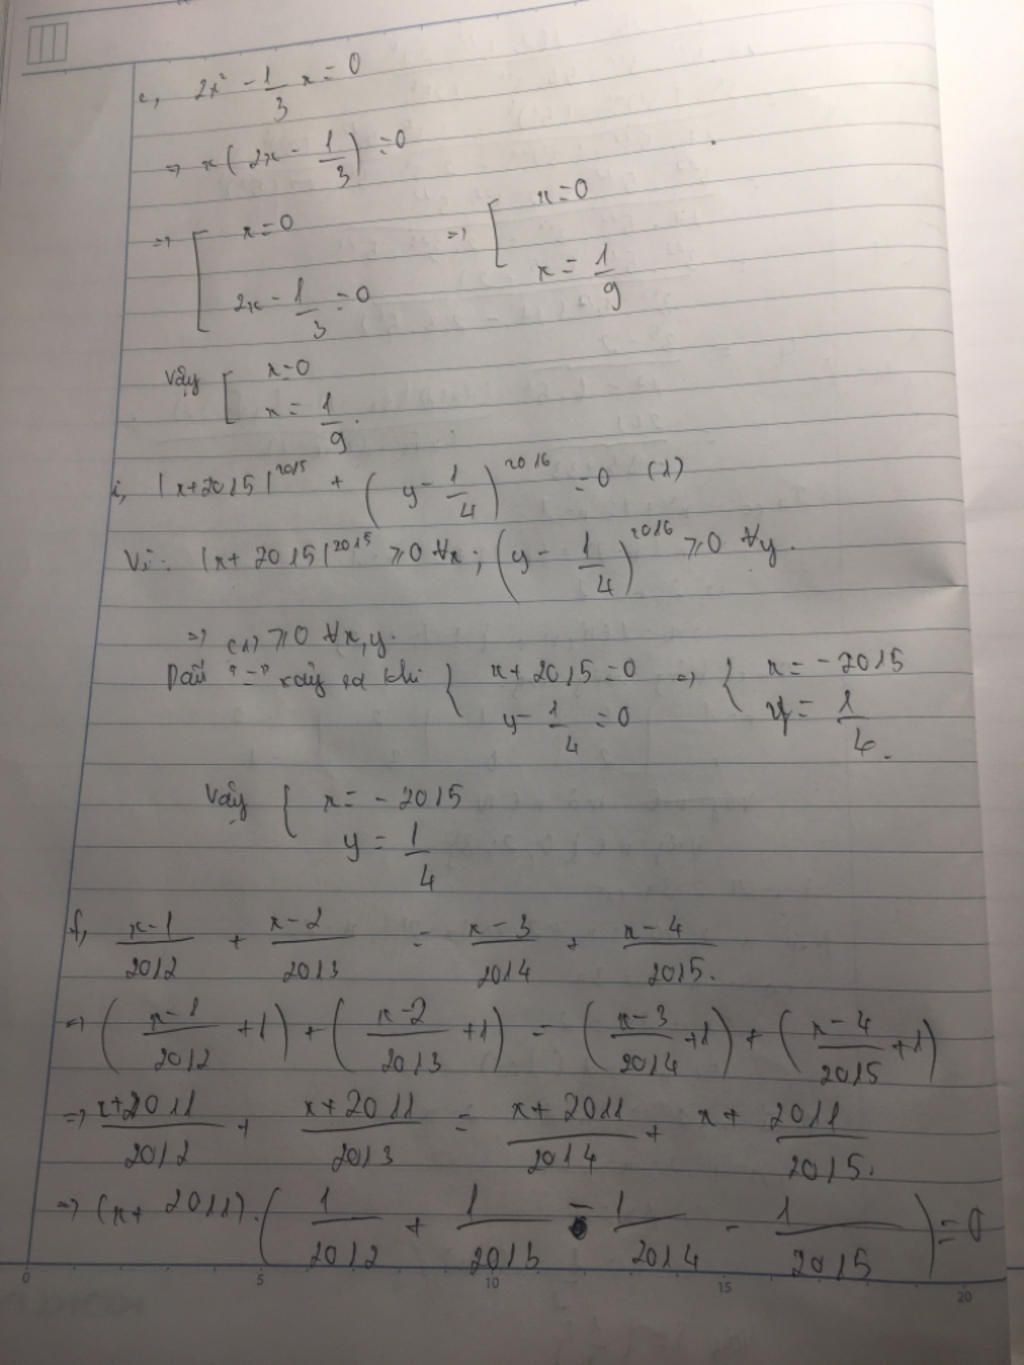 e, 2x² - 1/3 x = 0
=> x(2x - 1/3) = 0
=> [ x=0 => [ x=0
2x - 1/3 = 0 x = 1/9
Vậy [ x=0
x = 1/9.
i, |x+2015|^2015 + (y - 1/4)^2016 = 0 (1)
Vì: |x+2015|^2015 ≥ 0 ∀x; (y - 1/4)^2016 ≥ 0 ∀y.
=> (1) ≥ 0 ∀x,y.
Dấu "=" xảy ra khi { x+2015=0 => { x = -2015
y - 1/4 = 0 y = 1/4.
Vậy { x = -2015
y = 1/4
f, (x-1)/2012 + (x-2)/2013 = (x-3)/2014 + (x-4)/2015.
=> ((x-1)/2012 + 1) + ((x-2)/2013 + 1) = ((x-3)/2014 + 1) + ((x-4)/2015 + 1)
=> (x+2011)/2012 + (x+2011)/2013 = (x+2011)/2014 + x + 2011/2015.
=> (x+2011).(1/2012 + 1/2013 - 1/2014 - 1/2015) = 0
0 5 10 15 20